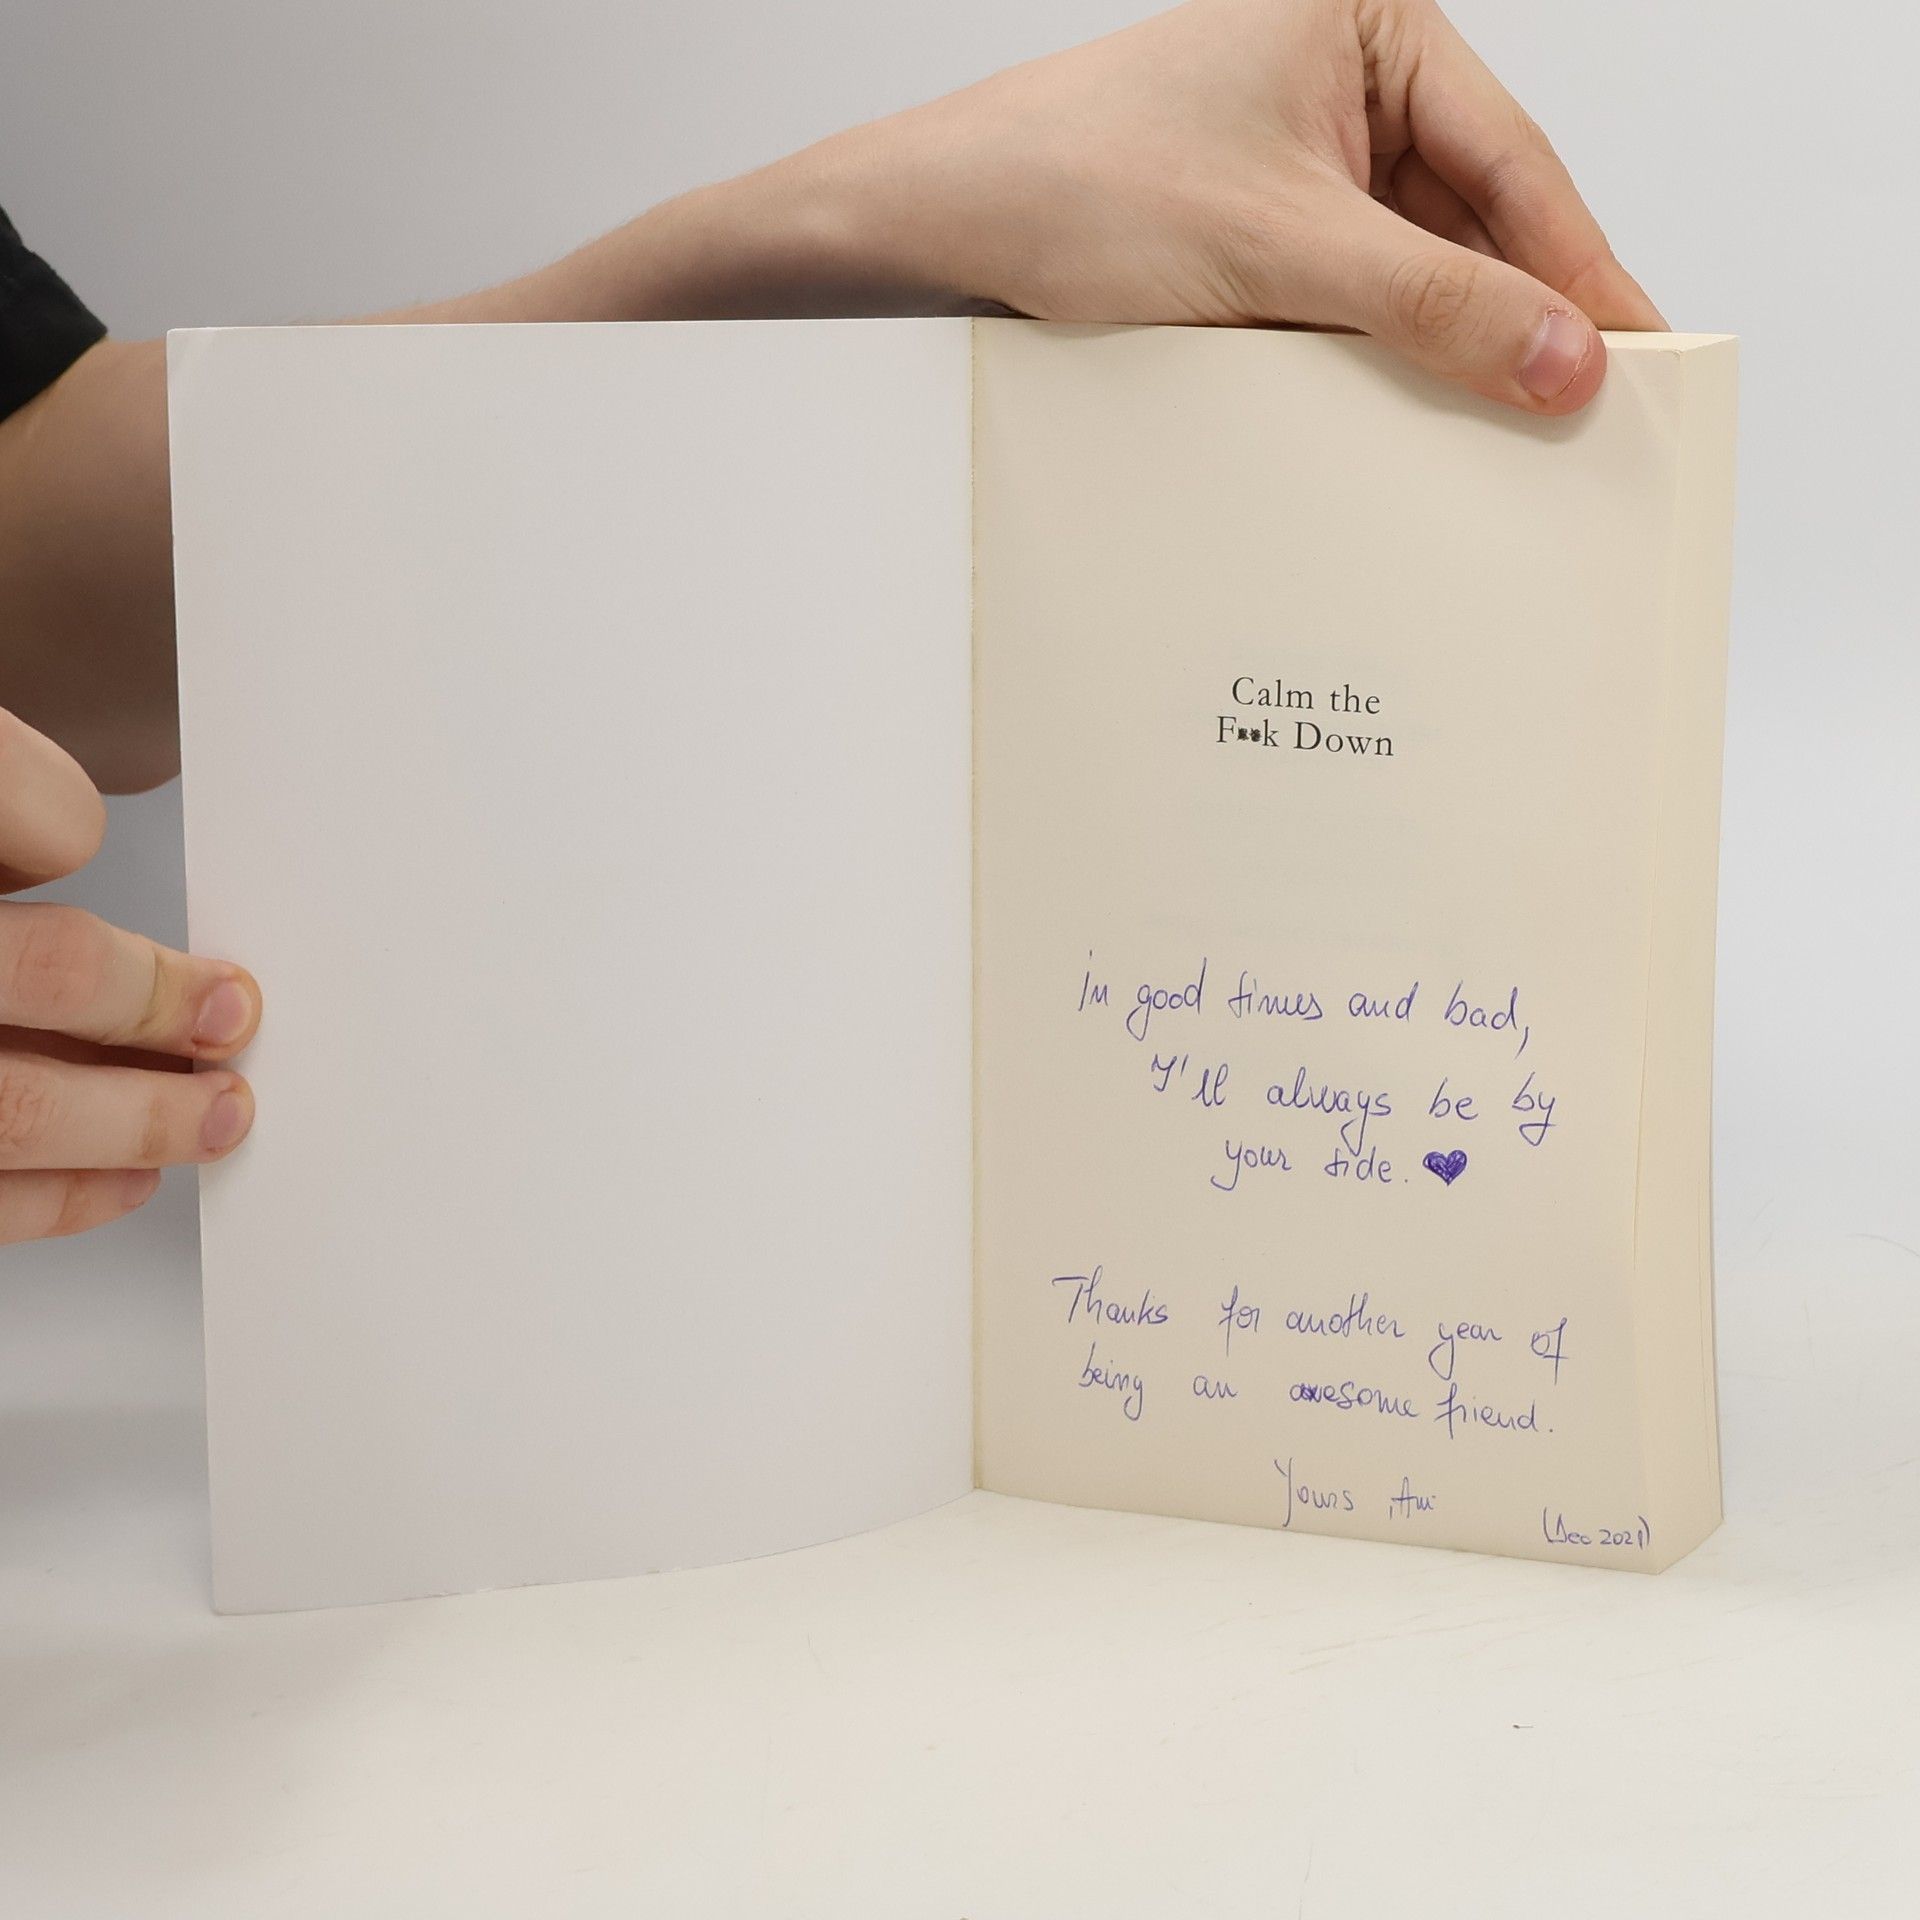 Calm the
F**k Down
In good times and bad,
I'll always be by
your side. ♥
Thanks for another year of
being an awesome friend.
Yours, Ami
(Dec 2021)